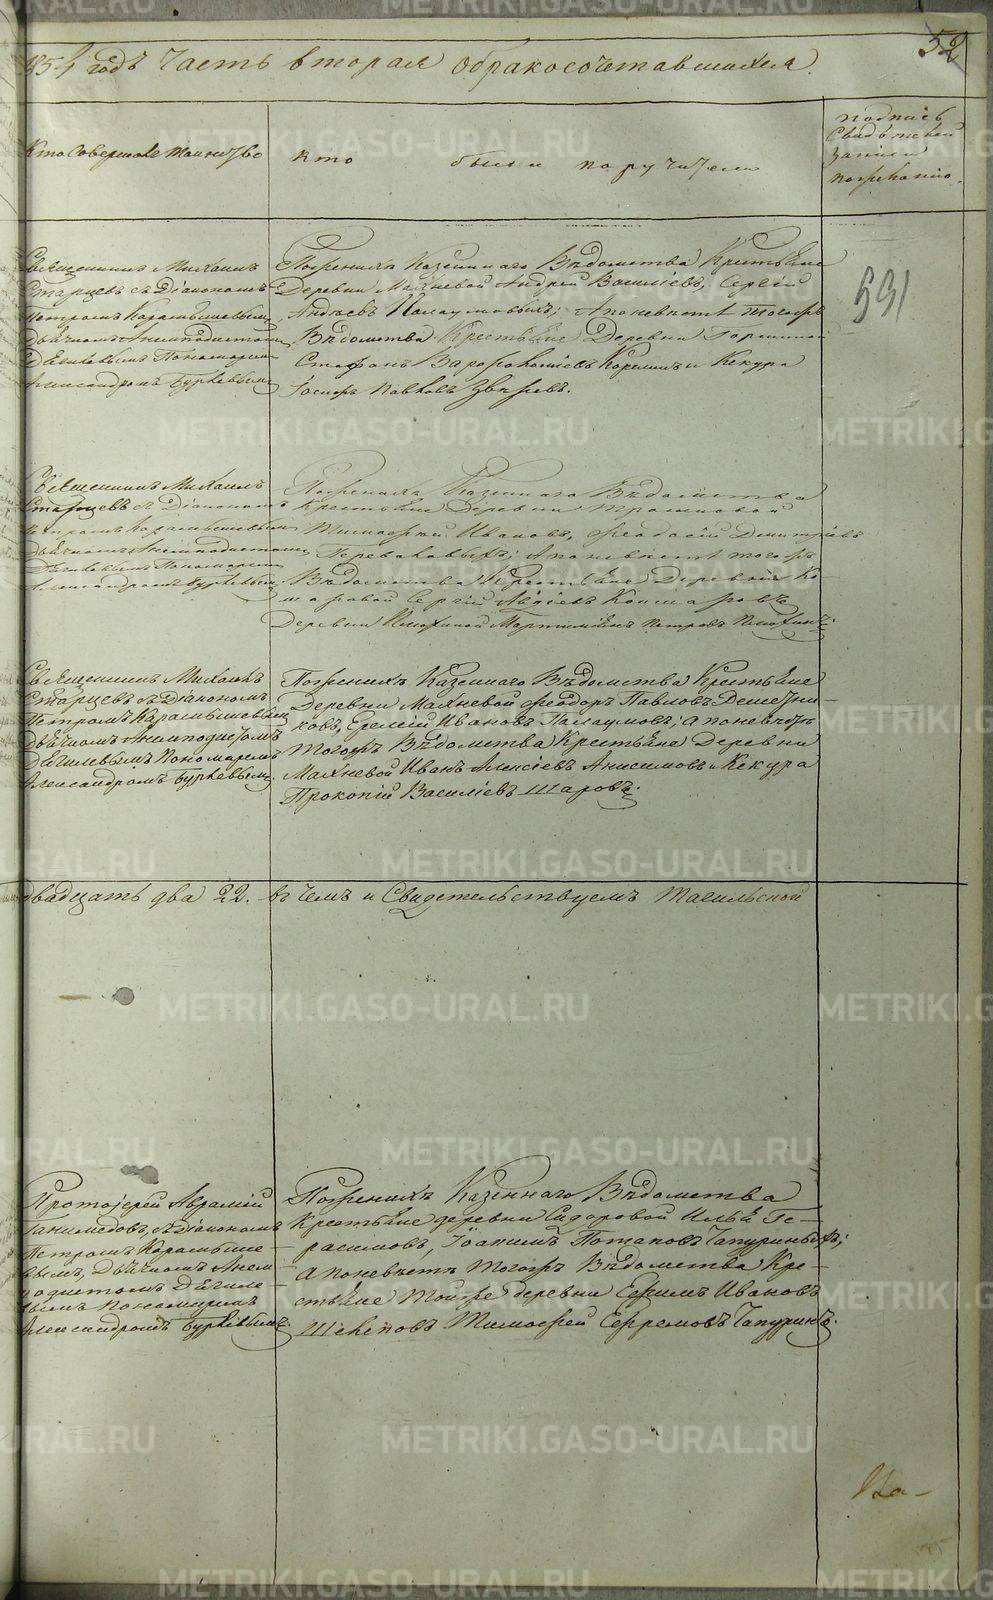 52
1854 годъ Часть вторая обракосочетавшихся.
Кто Совершалъ Таинство
кто были поручители
подпись
Свидѣтелей
записи
пожеланію.
Священникъ Михаилъ
Старцевъ съ Діакономъ
Петромъ Карамышевымъ
Дьячкомъ Анемподистомъ
Дягилевымъ Пономаремъ
Александромъ Бурковымъ
Поженихѣ Казеннаго Вѣдомства Крестьяне
Деревни Махневой Андрей Василіевъ, Сергѣй
Андреевъ Палаумовыхъ; Апоневѣстѣ Тогожъ
Вѣдомства Крестьяне Деревни
Стефанъ и Кекура
Іосифъ Павловъ Звѣревъ.
531
Священникъ Михаилъ
Старцевъ съ Діакономъ
Петромъ Карамышевымъ
Дьячкомъ Анемподистомъ
Дягилевымъ Пономаремъ
Александромъ Бурковымъ
Поженихѣ Казеннаго Вѣдомства
Крестьяне Деревни Трошковой
Тимофей Ивановъ, Феодосій Димитріевъ
Переваловыхъ; Апоневѣстѣ тогожъ
Вѣдомства Крестьяне Деревни Ко-
маровой Сергій Авдіевъ Комаровъ
Деревни Плюхиной Мартиміянъ Петровъ Плюхинъ.
Священникъ Михаилъ
Старцевъ съ Діакономъ
Петромъ Карамышевымъ
Дьячкомъ Анемподистомъ
Дягилевымъ Пономаремъ
Александромъ Бурковымъ.
Поженихѣ Казеннаго Вѣдомства Крестьяне
Деревни Махневой Феодоръ Павловъ Решетни-
ковъ, Елисей Ивановъ Палаумовъ; Апоневѣстѣ
Тогожъ Вѣдомства Крестьяне Деревни
Махневой Иванъ Алексіевъ Анисимовъ и Кекура
Прокопій Василіевъ Шаровъ.
двадцать два 22. въ чемъ и Свидетельствуемъ Тагильской
Протоіерей Аврамій
Ганимедовъ, съ Діакономъ
Петромъ Карамыше-
вымъ, Дьячкомъ Анем-
подистомъ Дягиле-
вымъ Пономаремъ
Александромъ Бурковымъ.
Поженихѣ Казеннаго Вѣдомства
Крестьяне деревни Сидоровой Илья Ге-
расимовъ, Іоакимъ Потаповъ Чапуриныхъ;
Апоневѣстѣ Тогожъ Вѣдомства Кре-
стьяне Тойже деревни Ефимъ Ивановъ
Щекотовъ Тимофей Ефремовъ Чапуринъ.
METRIKI.GASO-URAL.RU